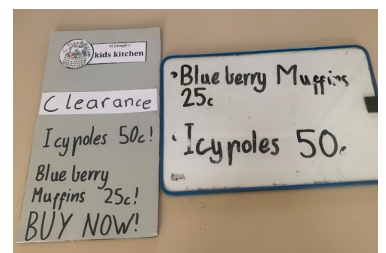 St Joseph's
kids kitchen
Clearance
Icypoles 50c!
Blue berry
Muffins 25c!
BUY NOW!
Blue berry Muffins
25c
Icypoles 50c